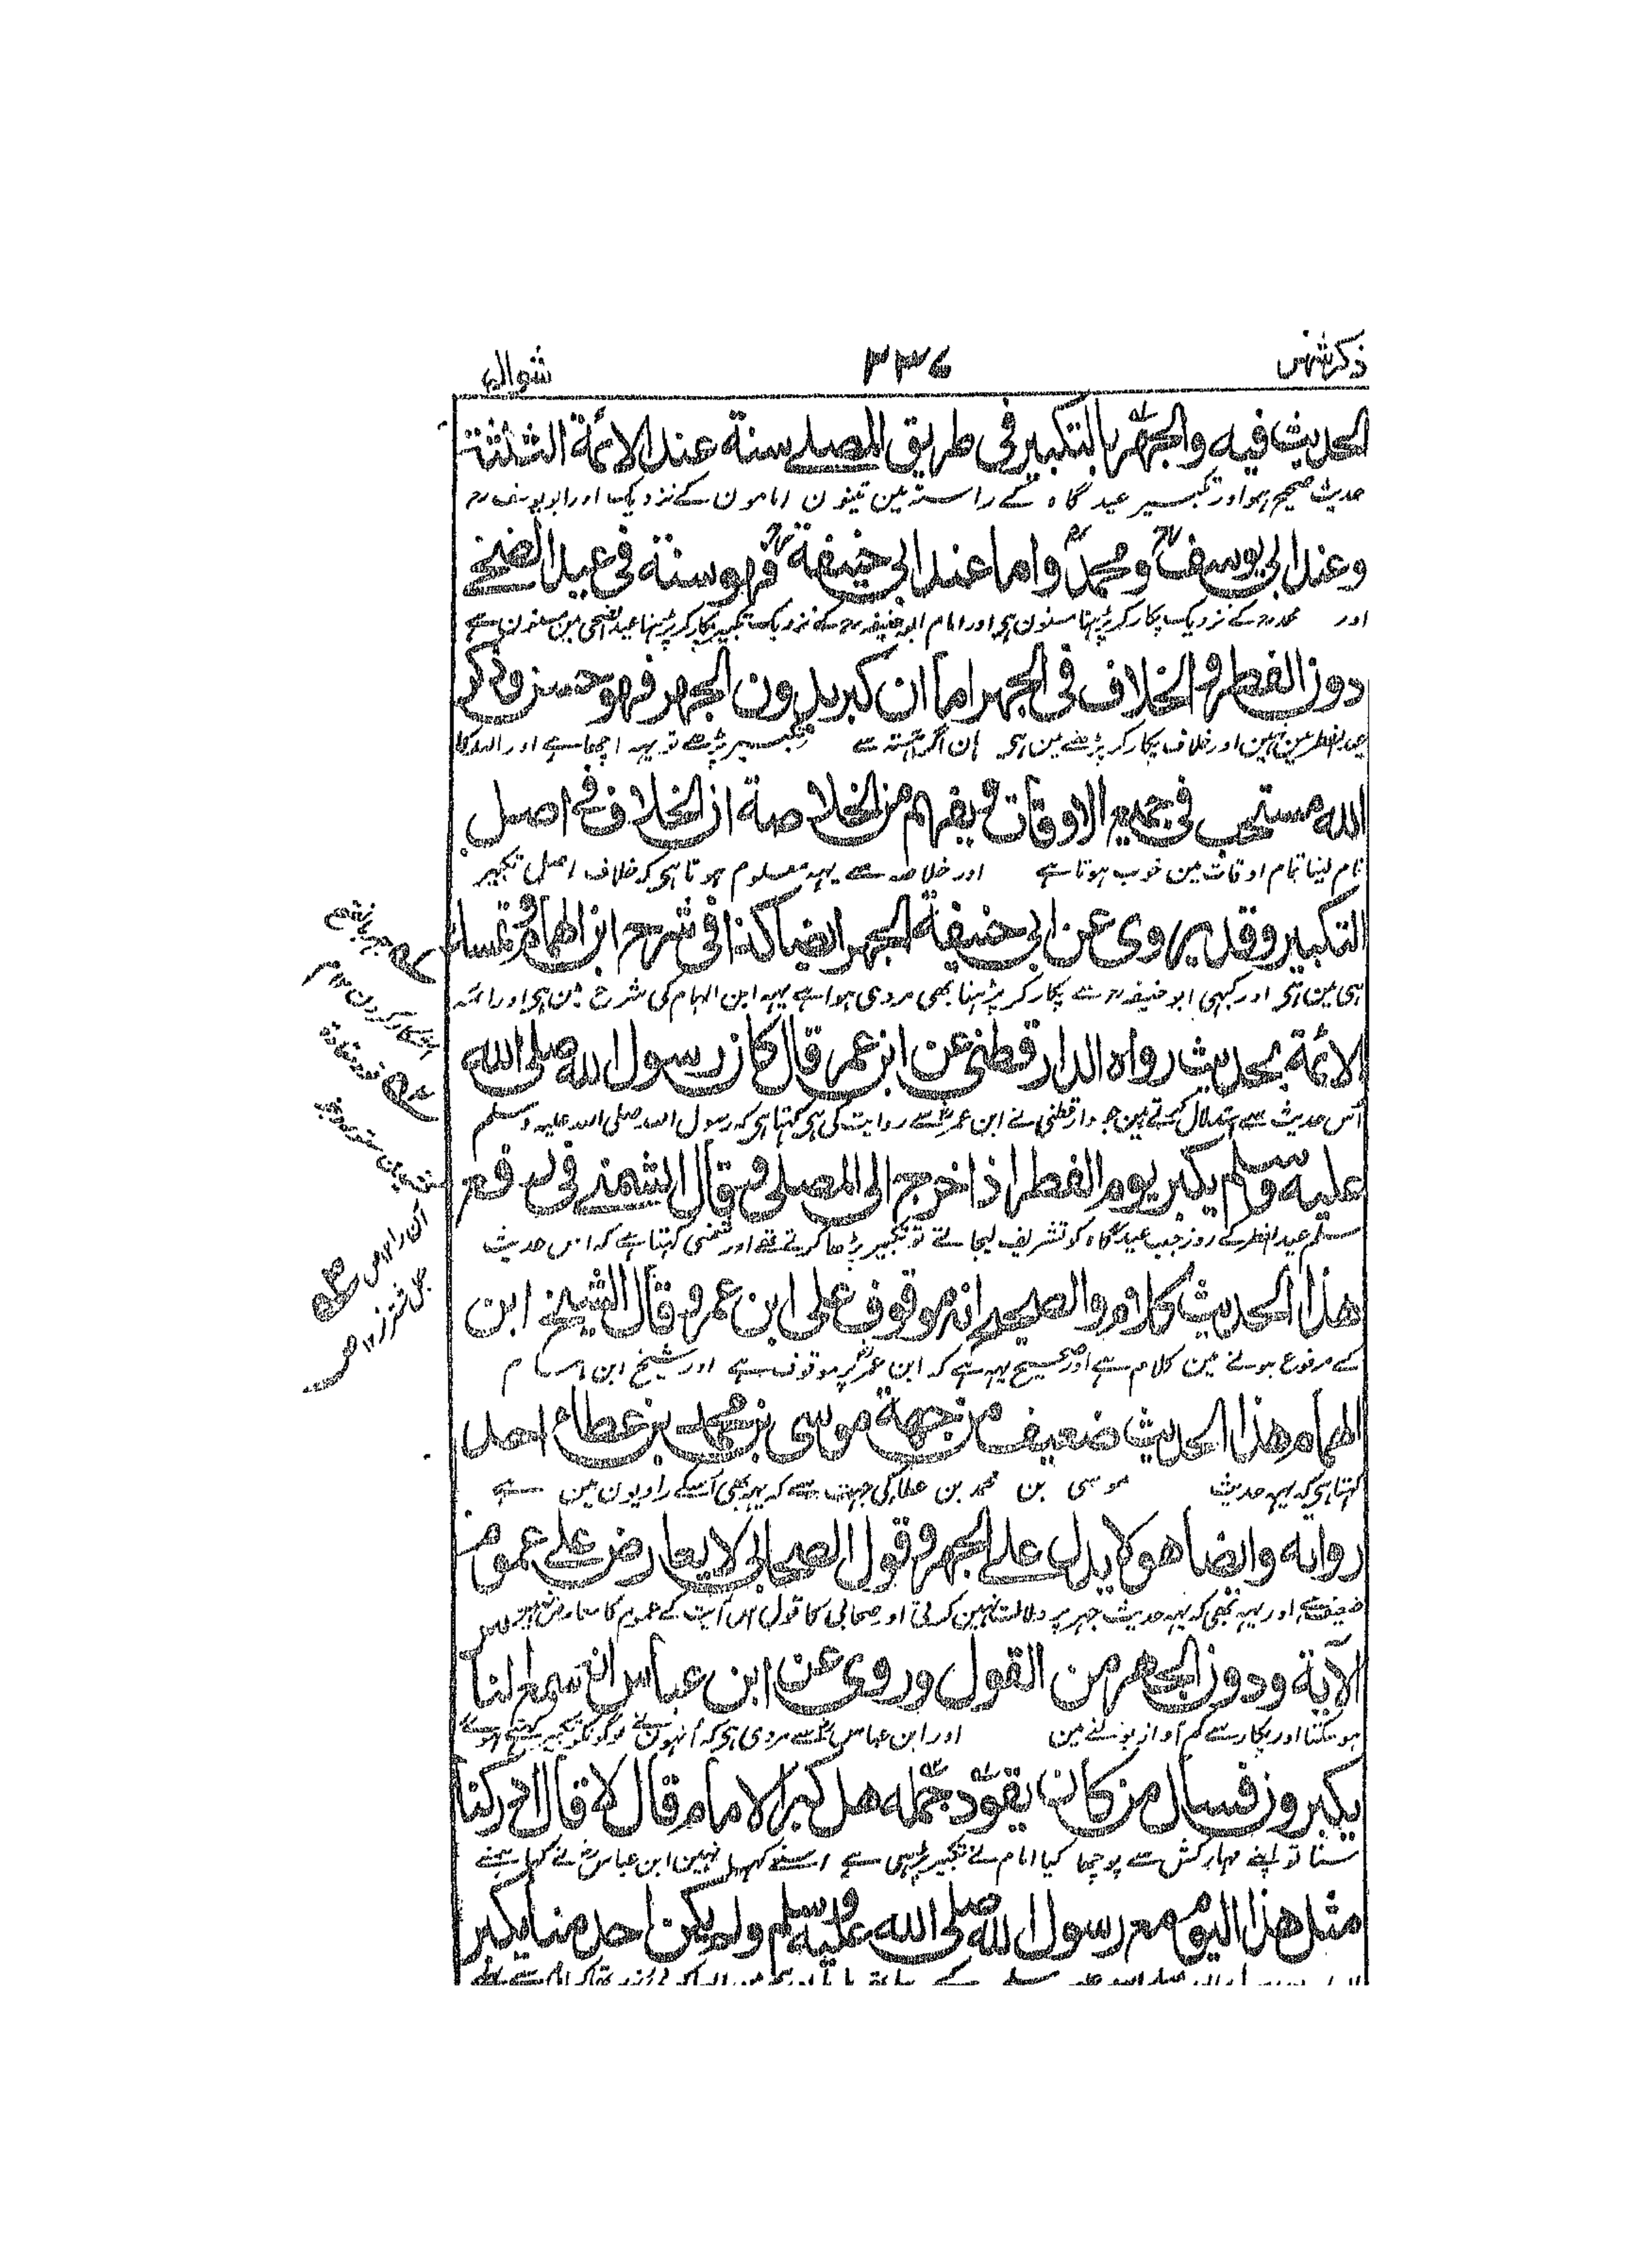 ذکر شہر
۳۳۶
شوال
الحديث فيه والجهر بالتكبير في طريق المصلے سنة عند الائمة الثلثة
حدیث صحیح ہو اور تکبیر عید گاہ کے راستہ مین تینون امامون کے نزدیک اور ابو یوسف رح
وعند ابي يوسف ومحمد واما عند ابي حنيفة فهو سنة في عيد الضحے
اور محمد رح کے نزدیک پکار کر پڑہنا مسنون ہی اور امام ابو حنیفہ رح کے نزدیک تکبیر پکار کر پڑہنا عید الضحی مین مسنون ہے
دون الفطر والخلاف في الجهر اما ان كبر بدون الجهر فهو حسن وذكر
عید الفطر مین نہین اور خلاف پکار کر پڑھنے مین ہی ہان اگر آہستہ سے تکبیر پڑھے تو یہہ اچھا ہے اور اللہ کا
الله مستحب في جميع الاوقات ويفهم من الخلاصة ان الخلاف في اصل
نام لینا تمام اوقات مین خوب ہوتا ہے اور خلاصہ سے یہہ معلوم ہوتا ہی کہ خلاف اصل تکبیر
التكبير وقد يروى عن ابي حنيفة الجهر ايضا كذا في شرح ابن الهمام وتمسك
ہی مین ہی اور کبہی ابو حنیفہ رح سے پکار کر پڑہنا بھی مروی ہوا ہے یہہ ابن الہام کی شرح مین ہی اور ائمہ
الائمة بحديث رواه الدارقطني عن ابن عمر قال كان رسول الله صلى الله
اس حدیث سے استدلال کرتے ہین جو دارقطنی نے ابن عمر سے روایت کی ہی کہتا ہی کہ رسول اللہ صلی اللہ علیہ وسلم
عليه وسلم يكبر يوم الفطر اذا خرج الى المصلى وقال الشمني في رفع
عید الفطر کے روز جب عید گاہ کو تشریف لیجاتے تو تکبیر پڑھا کرتے تھے اور شمنی کہتا ہے کہ اس حدیث
هذا الحديث كلام والصحيح انه موقوف على ابن عمر وقال الشيخ ابن
کے مرفوع ہونے مین کلام ہے اور صحیح یہہ ہے کہ ابن عمر پر موقوف ہے اور شیخ ابن ہمام
الهمام هذا الحديث ضعيف من جهة موسى بن محمد بن عطاء احد
کہتا ہی کہ یہہ حدیث موسی بن محمد بن عطا کی جہت سے کہ یہہ بھی اسکے راویون مین ہے
رواته وايضا هو لا يدل على الجهر وقول الصحابي لا يعارض على عموم
ضعیف ہے اور یہہ بھی کہ یہہ حدیث جہر پر دلالت نہین کرتی اور صحابی کا قول اس آیت کے عموم کا معارض نہین
الآية ودون الجهر من القول وروى عن ابن عباس انه سمع الناس
ہو سکتا اور پکار سے کم آواز بولنے مین اور ابن عباس سے مروی ہی کہ انہون نے لوگونکو تکبیر کہتے ہوئے
يكبرون فسال من كان يقود جمله هل كبر الامام قال لا قال ادركنا
سنا تو اپنے مہار کش سے پوچھا کیا امام نے تکبیر پڑہی ہے اسنے کہا نہین ابن عباس رض نے کہا ہمنے
مثل هذا اليوم مع رسول الله صلى الله عليه وسلم ولم يكن احد منا يكبر